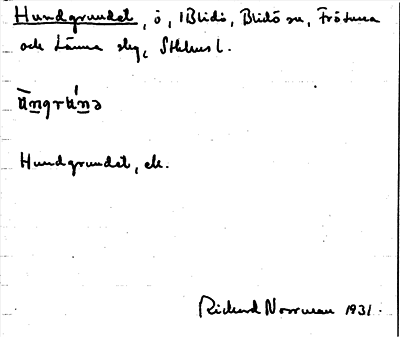 Hundgrundet, ö, i Blidö, Blidö sn, Frötuna
och Länna slg, Sthlms l.
Hundgrundet, ek.
Richard Norrman 1931.